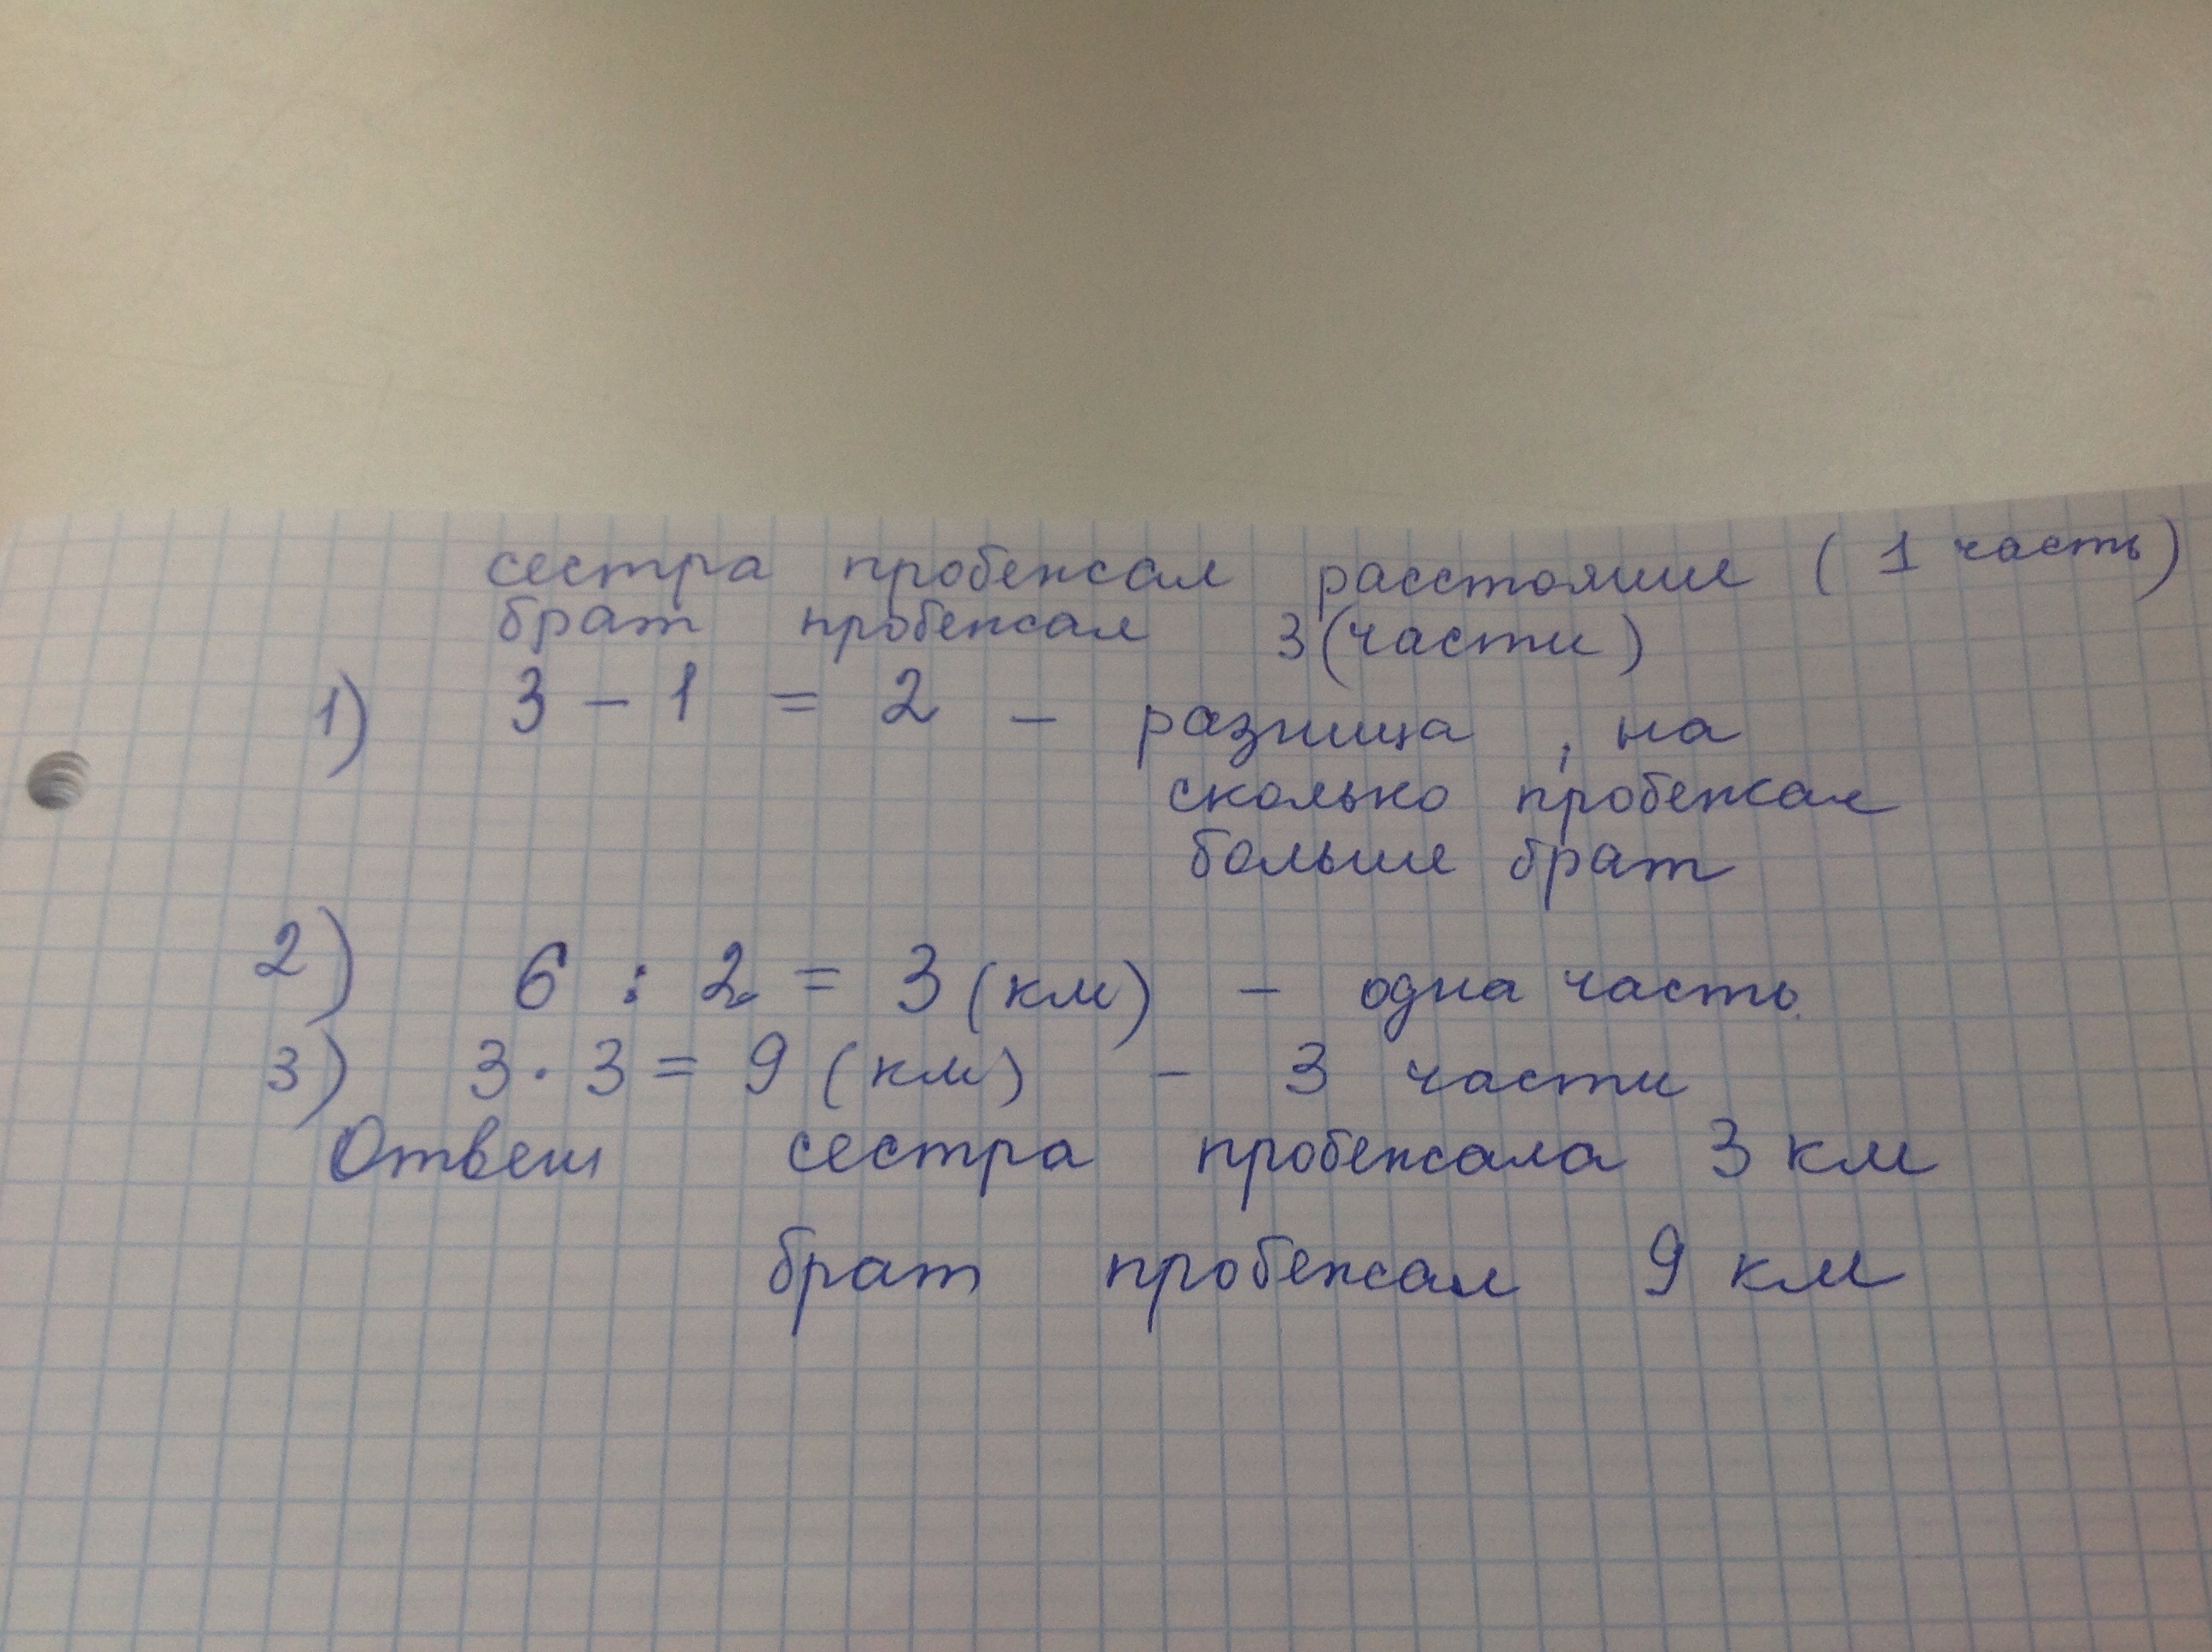 сестра пробежал расстояние ( 1 часть )
брат пробежал 3 (части)
1) 3 - 1 = 2 - разница , на
сколько пробежал
больше брат
2) 6 : 2 = 3 (км) - одна часть.
3) 3 · 3 = 9 (км) - 3 части
Ответ сестра пробежала 3 км
брат пробежал 9 км